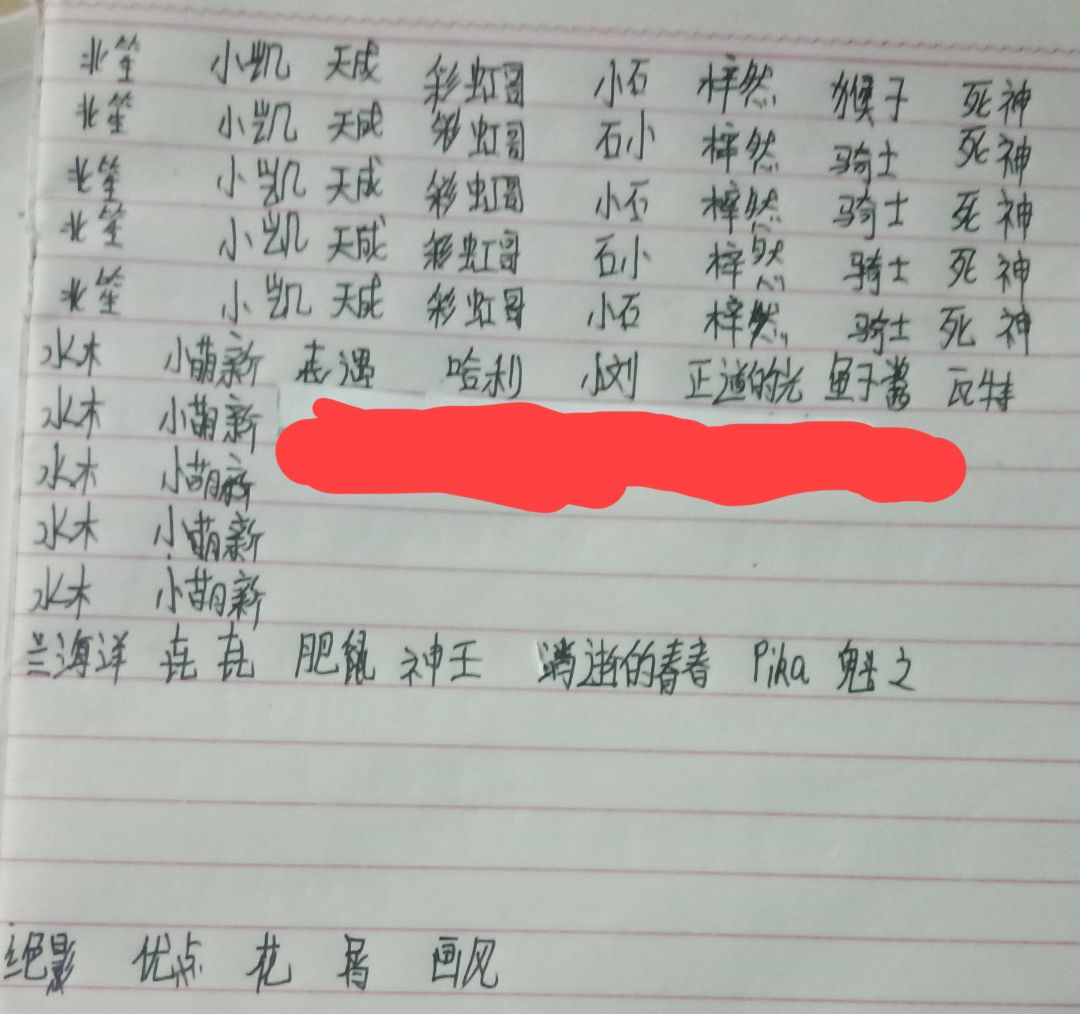 北笙 小凯 天成 彩虹哥 小石 梓然 猴子 死神
北笙 小凯 天成 彩虹哥 石小 梓然 骑士 死神
北笙 小凯 天成 彩虹哥 小石 梓然 骑士 死神
北笙 小凯 天成 彩虹哥 石小 梓然 骑士 死神
北笙 小凯 天成 彩虹哥 小石 梓然 骑士 死神
水木 小萌新 志遇 哈利 小刘 正道的光 鱼子酱 瓦特
水木 小萌新
水木 小萌新
水木 小萌新
水木 小萌新
兰海洋 垚垚 肥鼠 神王 消逝的青春 Pika 魁之
绝影 优点 花 画风